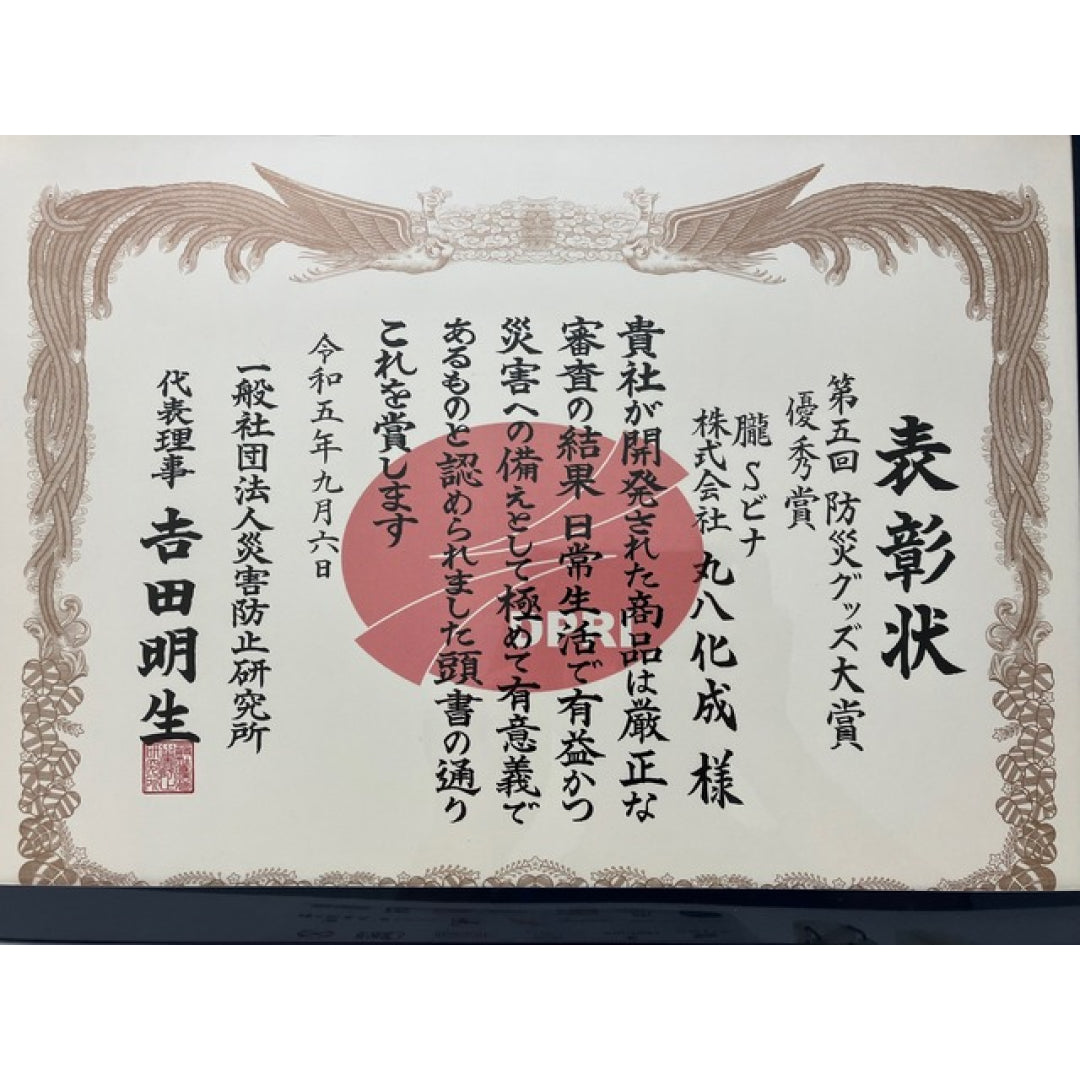 表彰状
第五回 防災グッズ大賞
優秀賞
朧Sビナ
株式会社 丸八化成 様
貴社が開発された商品は厳正な
審査の結果 日常生活で有益かつ
災害への備えとして極めて有意義で
あるものと認められました頭書の通り
これを賞します
令和五年九月六日
一般社団法人災害防止研究所
代表理事 吉田明生